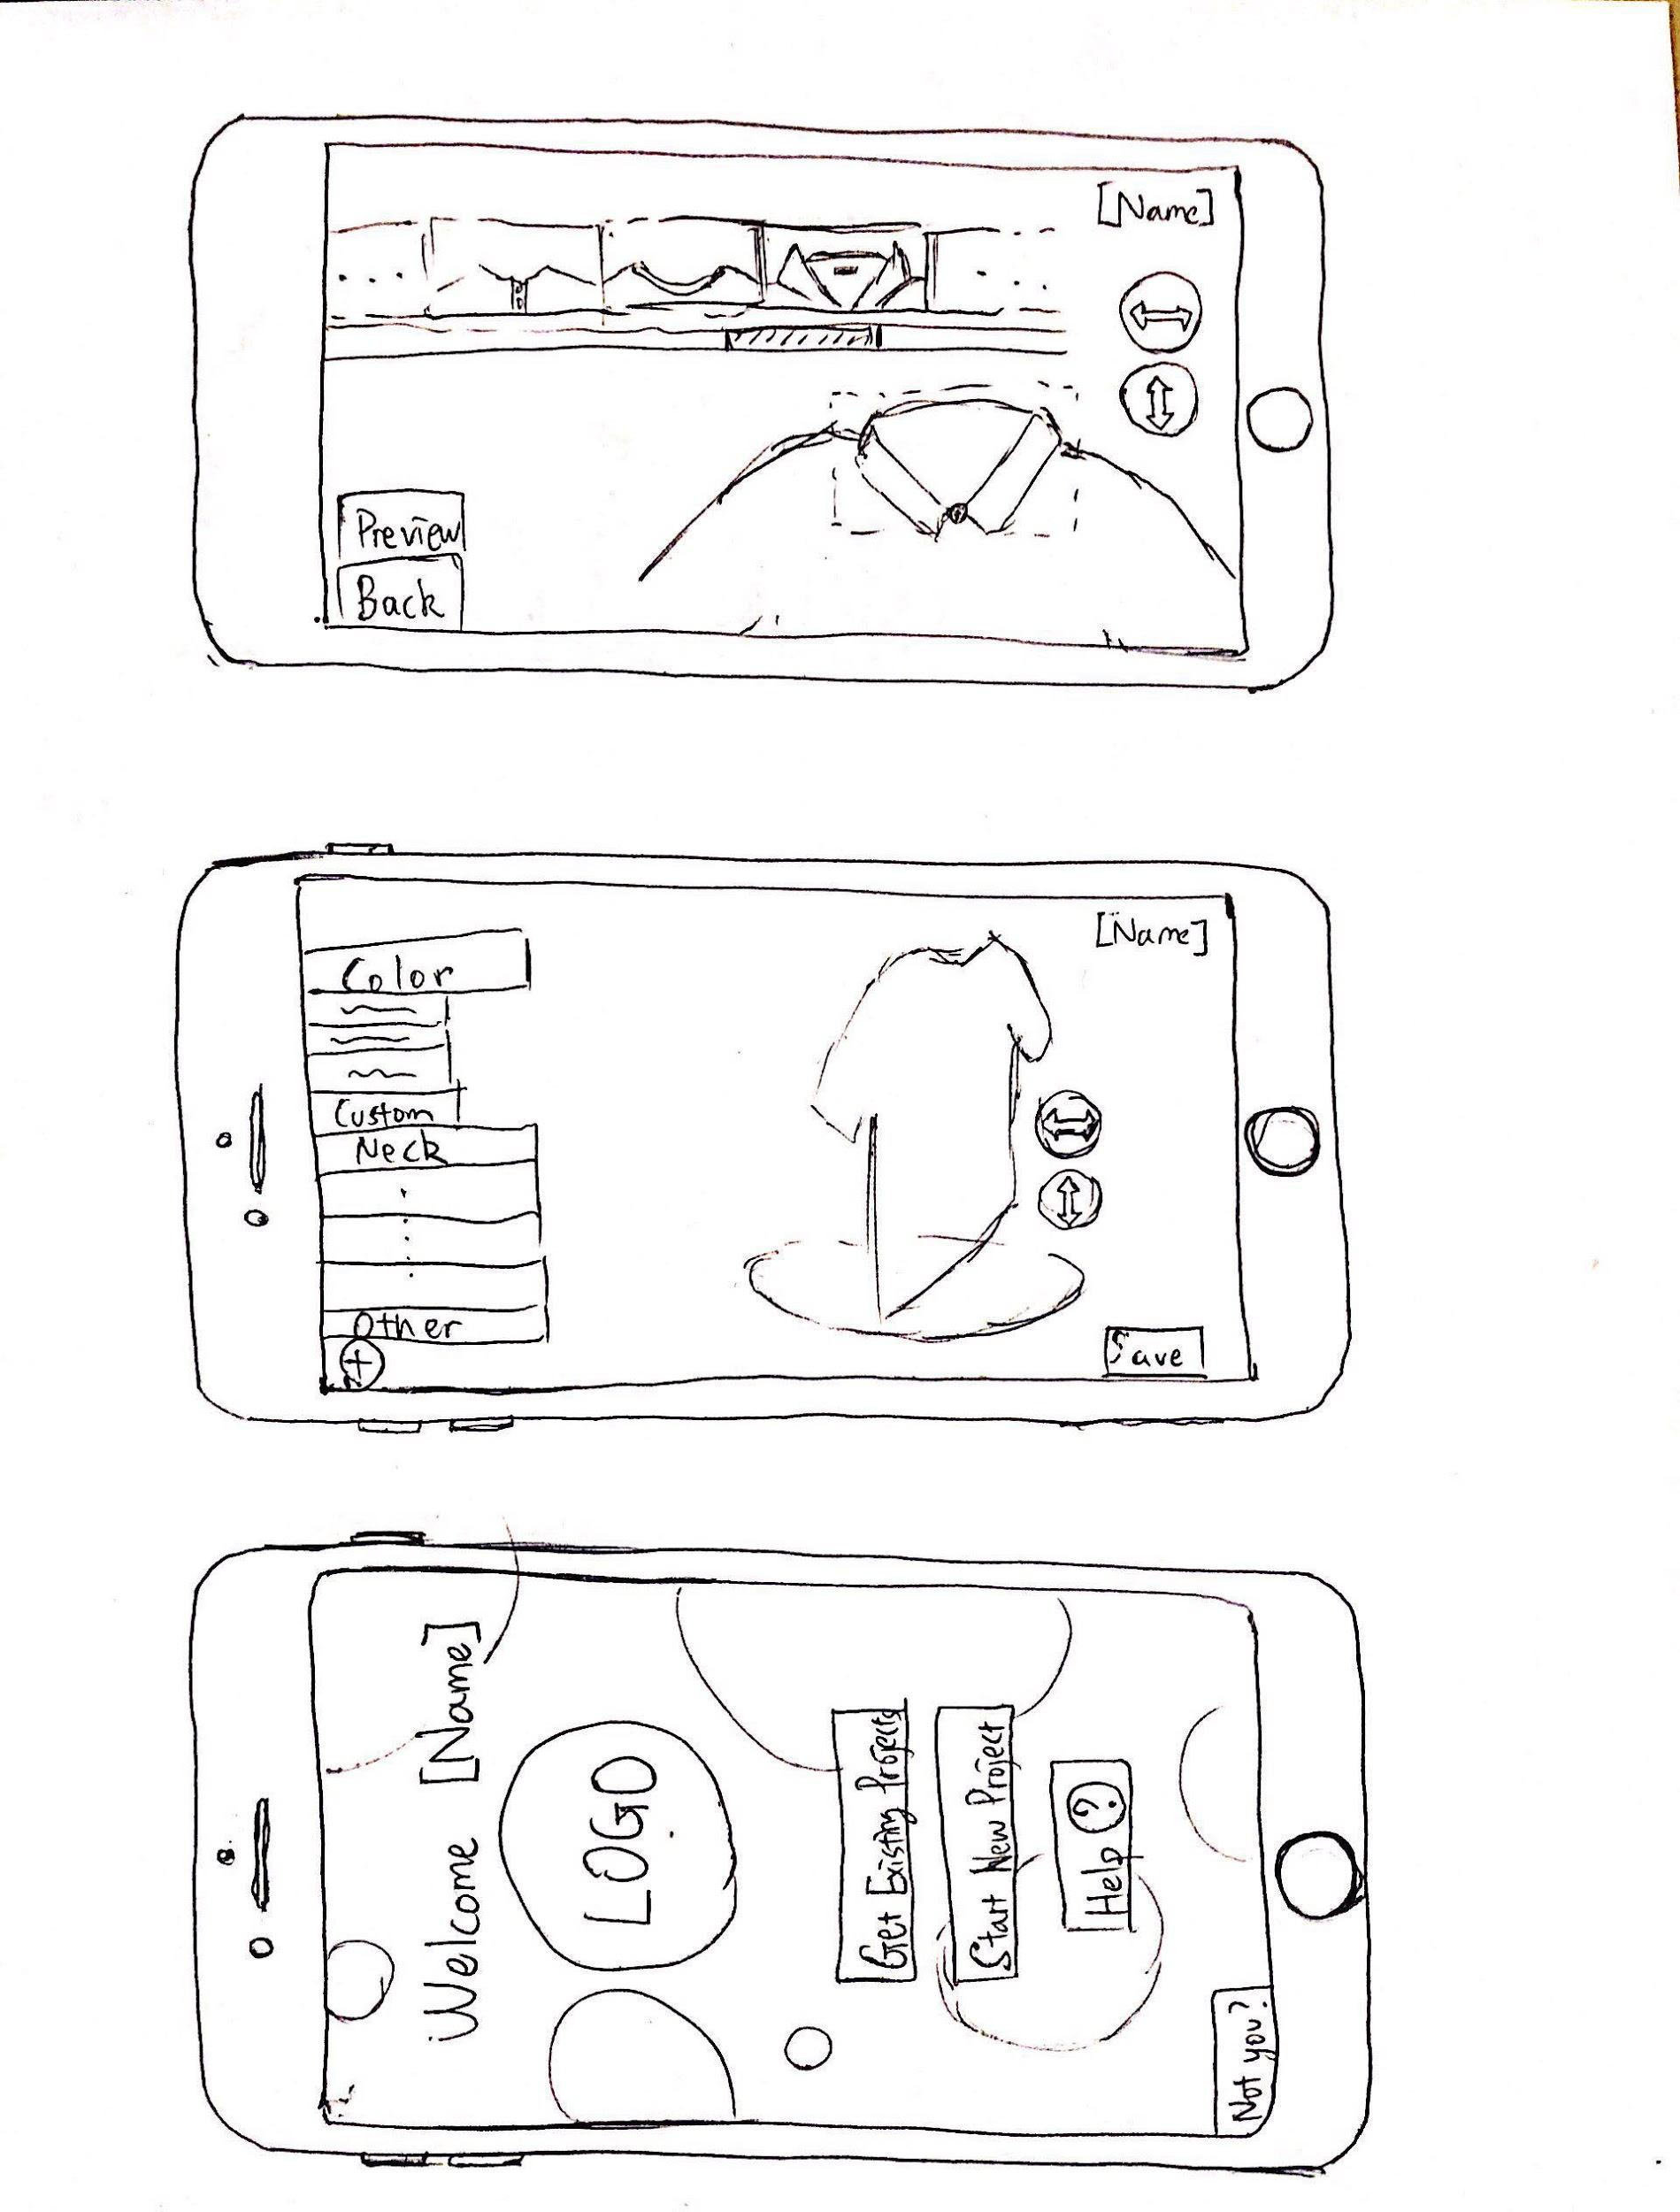 [Name]
Preview
Back
[Name]
Color
Custom
Neck
Other
+
Save
Welcome [Name]
LOGO
Get Existing Projects
Start New Project
Help ?
Not you?